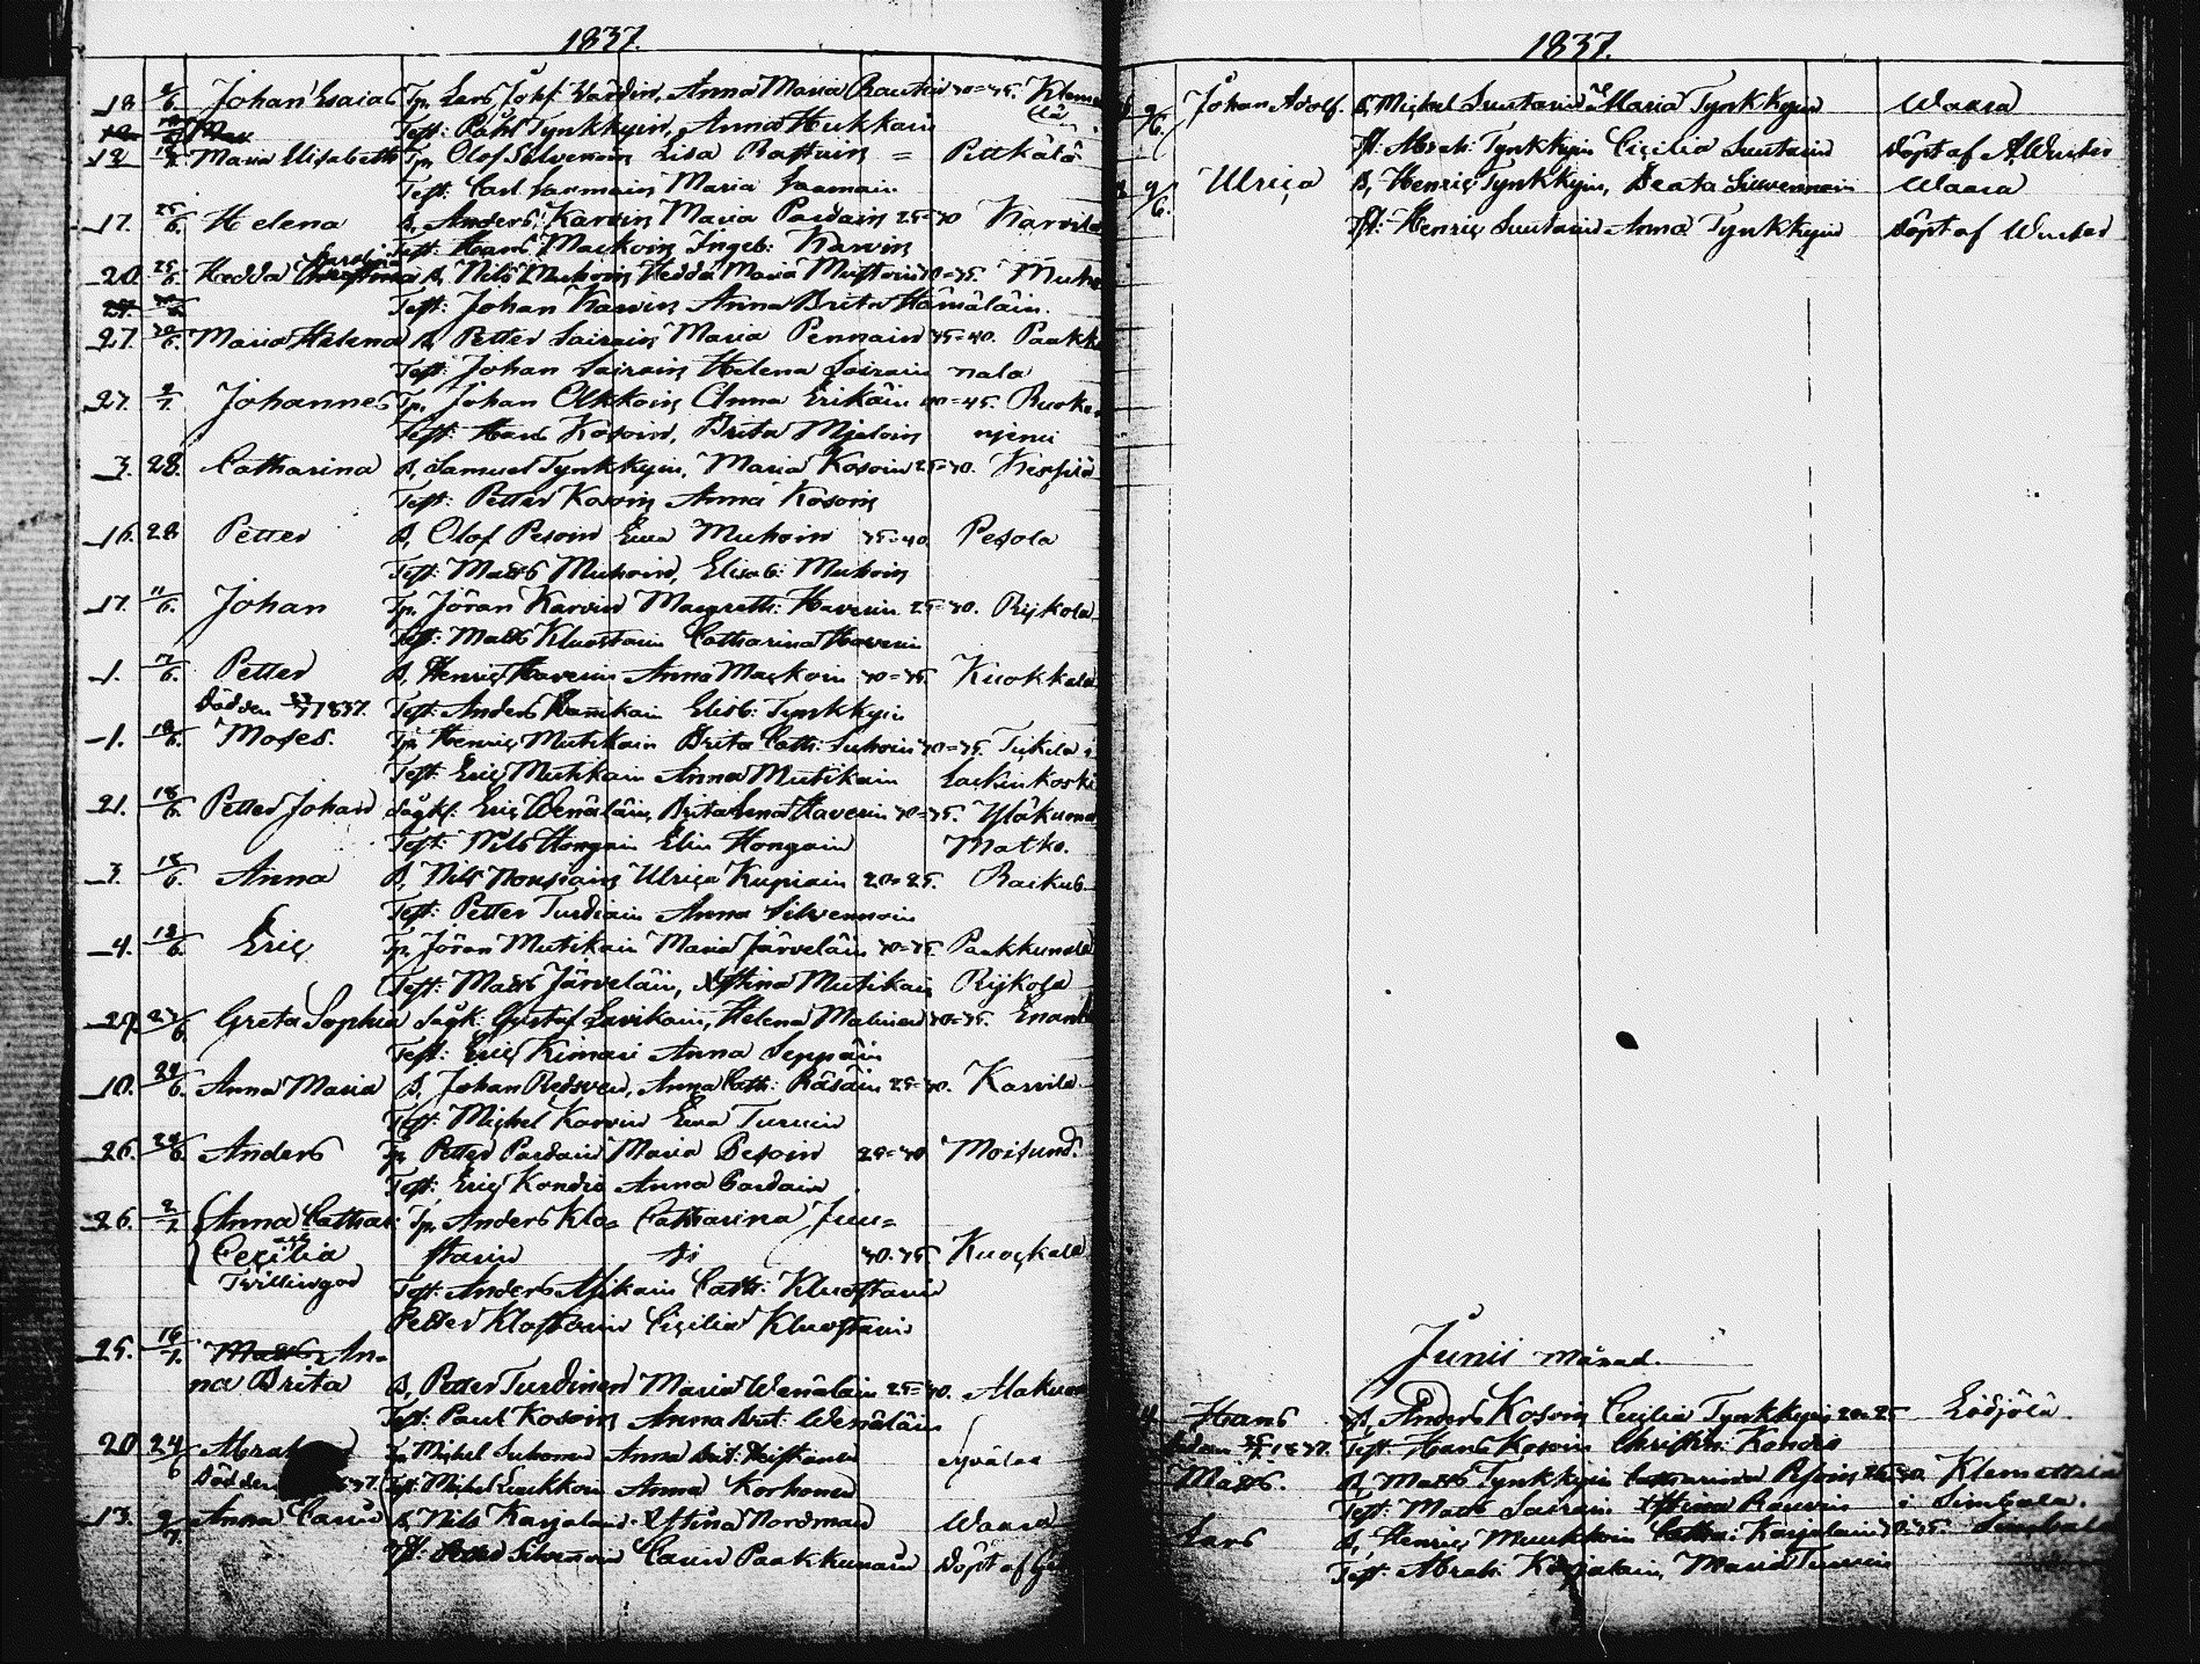 1837.
18 2/6 Johan Esaias Tp. Lars Johf Wardin, Anna Maria Rautia 40=45. Kleme
Test: Påhl Tynkkyin, Anna Hukkain
12 Maria Elisabeth Tp. Olof Silvenoin Lisa = Pittkälä
Test: Carl Laamain Maria Laamain
17. 25/6. Helena B, Anders Karvin Maria Pardain 25=30 Karvila
Test: Hans Maskoin Ingeb: Karvin
20. 25/6. Hedda Carolina B, Nils Muhoin Hedda Maria 40=45. Muho
Test: Johan Karvin Anna Brita Hämäläin.
27. Maria Helena B, Petter Sairain Maria Pennain 35=40. Paakku
Test: Johan Sairain Helena Sairain nala
27. 2/7. Johannes Tp. Johan Olkkoin Anna Erikäin 40=45. Ruoko
Test: Hans Kosoin, Brita Mjeloin njemi
3. 28. Catharina B, Samuel Tynkkyin, Maria Kosoin 25=30.
Test: Petter Kosoin Anna Kosoin
16. 28 Petter B, Olof Pesoin Ewa Muhoin 35=40. Pesola
Test: Matts Muhoin, Elisab: Muhoin
17. 11/6. Johan Tp. Jöran Karvin Margreth: Haverin 25=30. Rijkola
Test: Matts Kluostain Catharina Haverin
1. Petter B, Henric Haverin Anna Maskoin 30=35. Kuokkala
Död den 1837. Test: Anders Elisb: Tynkkyin
1. 18/6. Moses. Tp. Henric Mutikain Brita Cath: Suhoin 30=35. Tukila i
Test: Eric Mutikain Anna Mutikain Laskinkoski
21. 18/6. Petter Johan Sågkl: Eric Wenäläin, Brita Anna Haverin 30=35. Yläkuona
Test: Nils Hongain Elin Hongain Matko.
3. 18/6. Anna B, Nils Nousiain Ulrica Kupiain 20=25. Raikub
Test: Petter Turdiain Anna Silvennoin
4. 18/6. Eric Tp. Jöran Mutikain Maria Järveläin 30=35. Paakkunala
Test: Matts Järveläin, Xstina Mutikain Rijkola
29. 27/6. Greta Sophia Sågk: Gustaf Lavikain, Helena Malinen 30=35. Enan
Test: Eric Kimari Anna Seppäin
10. 24/6. Anna Maria B, Johan Redsven, Anna Cath: Räsäin 25=30. Karvila
Test: Michel Karvin Ewa Turuin
26. 24/6. Anders Tp. Petter Pardain Maria Pesoin 25=30 Moisund.
Test: Eric Kondia Anna Pardain
26. 2/7 Anna Cathar: Tp. Anders Klo= Catharina Juu=
och
Cecilia stain ti 30.35. Kuockala
Tvillingar Test: Anders Asikain Cath: Kluostain
Petter Klostain Cicilia Kluostain
25. 16/7. Matts, An=
na Brita B, Petter Turdinen Maria Wenäläin 25=30. Alakuon
Test: Paul Kosoin Anna Brit: Wenäläin
20 24/6 Abrah Tp. Michel Suhonen Anna Brit: Heiskanen
Död den 37. Test: Michel Anna Korhonen
13. 9/7. Anna Carin B, Nils Karjalain Xstina Nordman Waara
Tst: Petter Silvennoin Carin Paakkunain döpt af
1837.
9/6. Johan Adolf. B, Michel Suutarin o Maria Tynkkyin Waara
Tst: Abrah: Tynkkyin Cicilia Suutarin döpt af A. Winter
9/6. Ulrica B, Henric Tynkkyin, Beata Silvennoin Waara
Tst: Henric Suutarin Anna Tynkkyin döpt af Winter
Junii månad.
4 Hans B, Anders Kosoin Cecilia Tynkkyin 20=25 Lödjölä.
1837. Test: Hans Kosoin Christin: Kondia
Matts. B, Matts Tynkkyin Catharina Pesoin 25=30. Klemettilä
Test: Matts Sairain Xstina Rauvin i Simbala.
Lars B, Henric Muukkoin Catha: Karjalain 30=35. Simbala
Test: Abrah: Karjalain, Maria Turuin